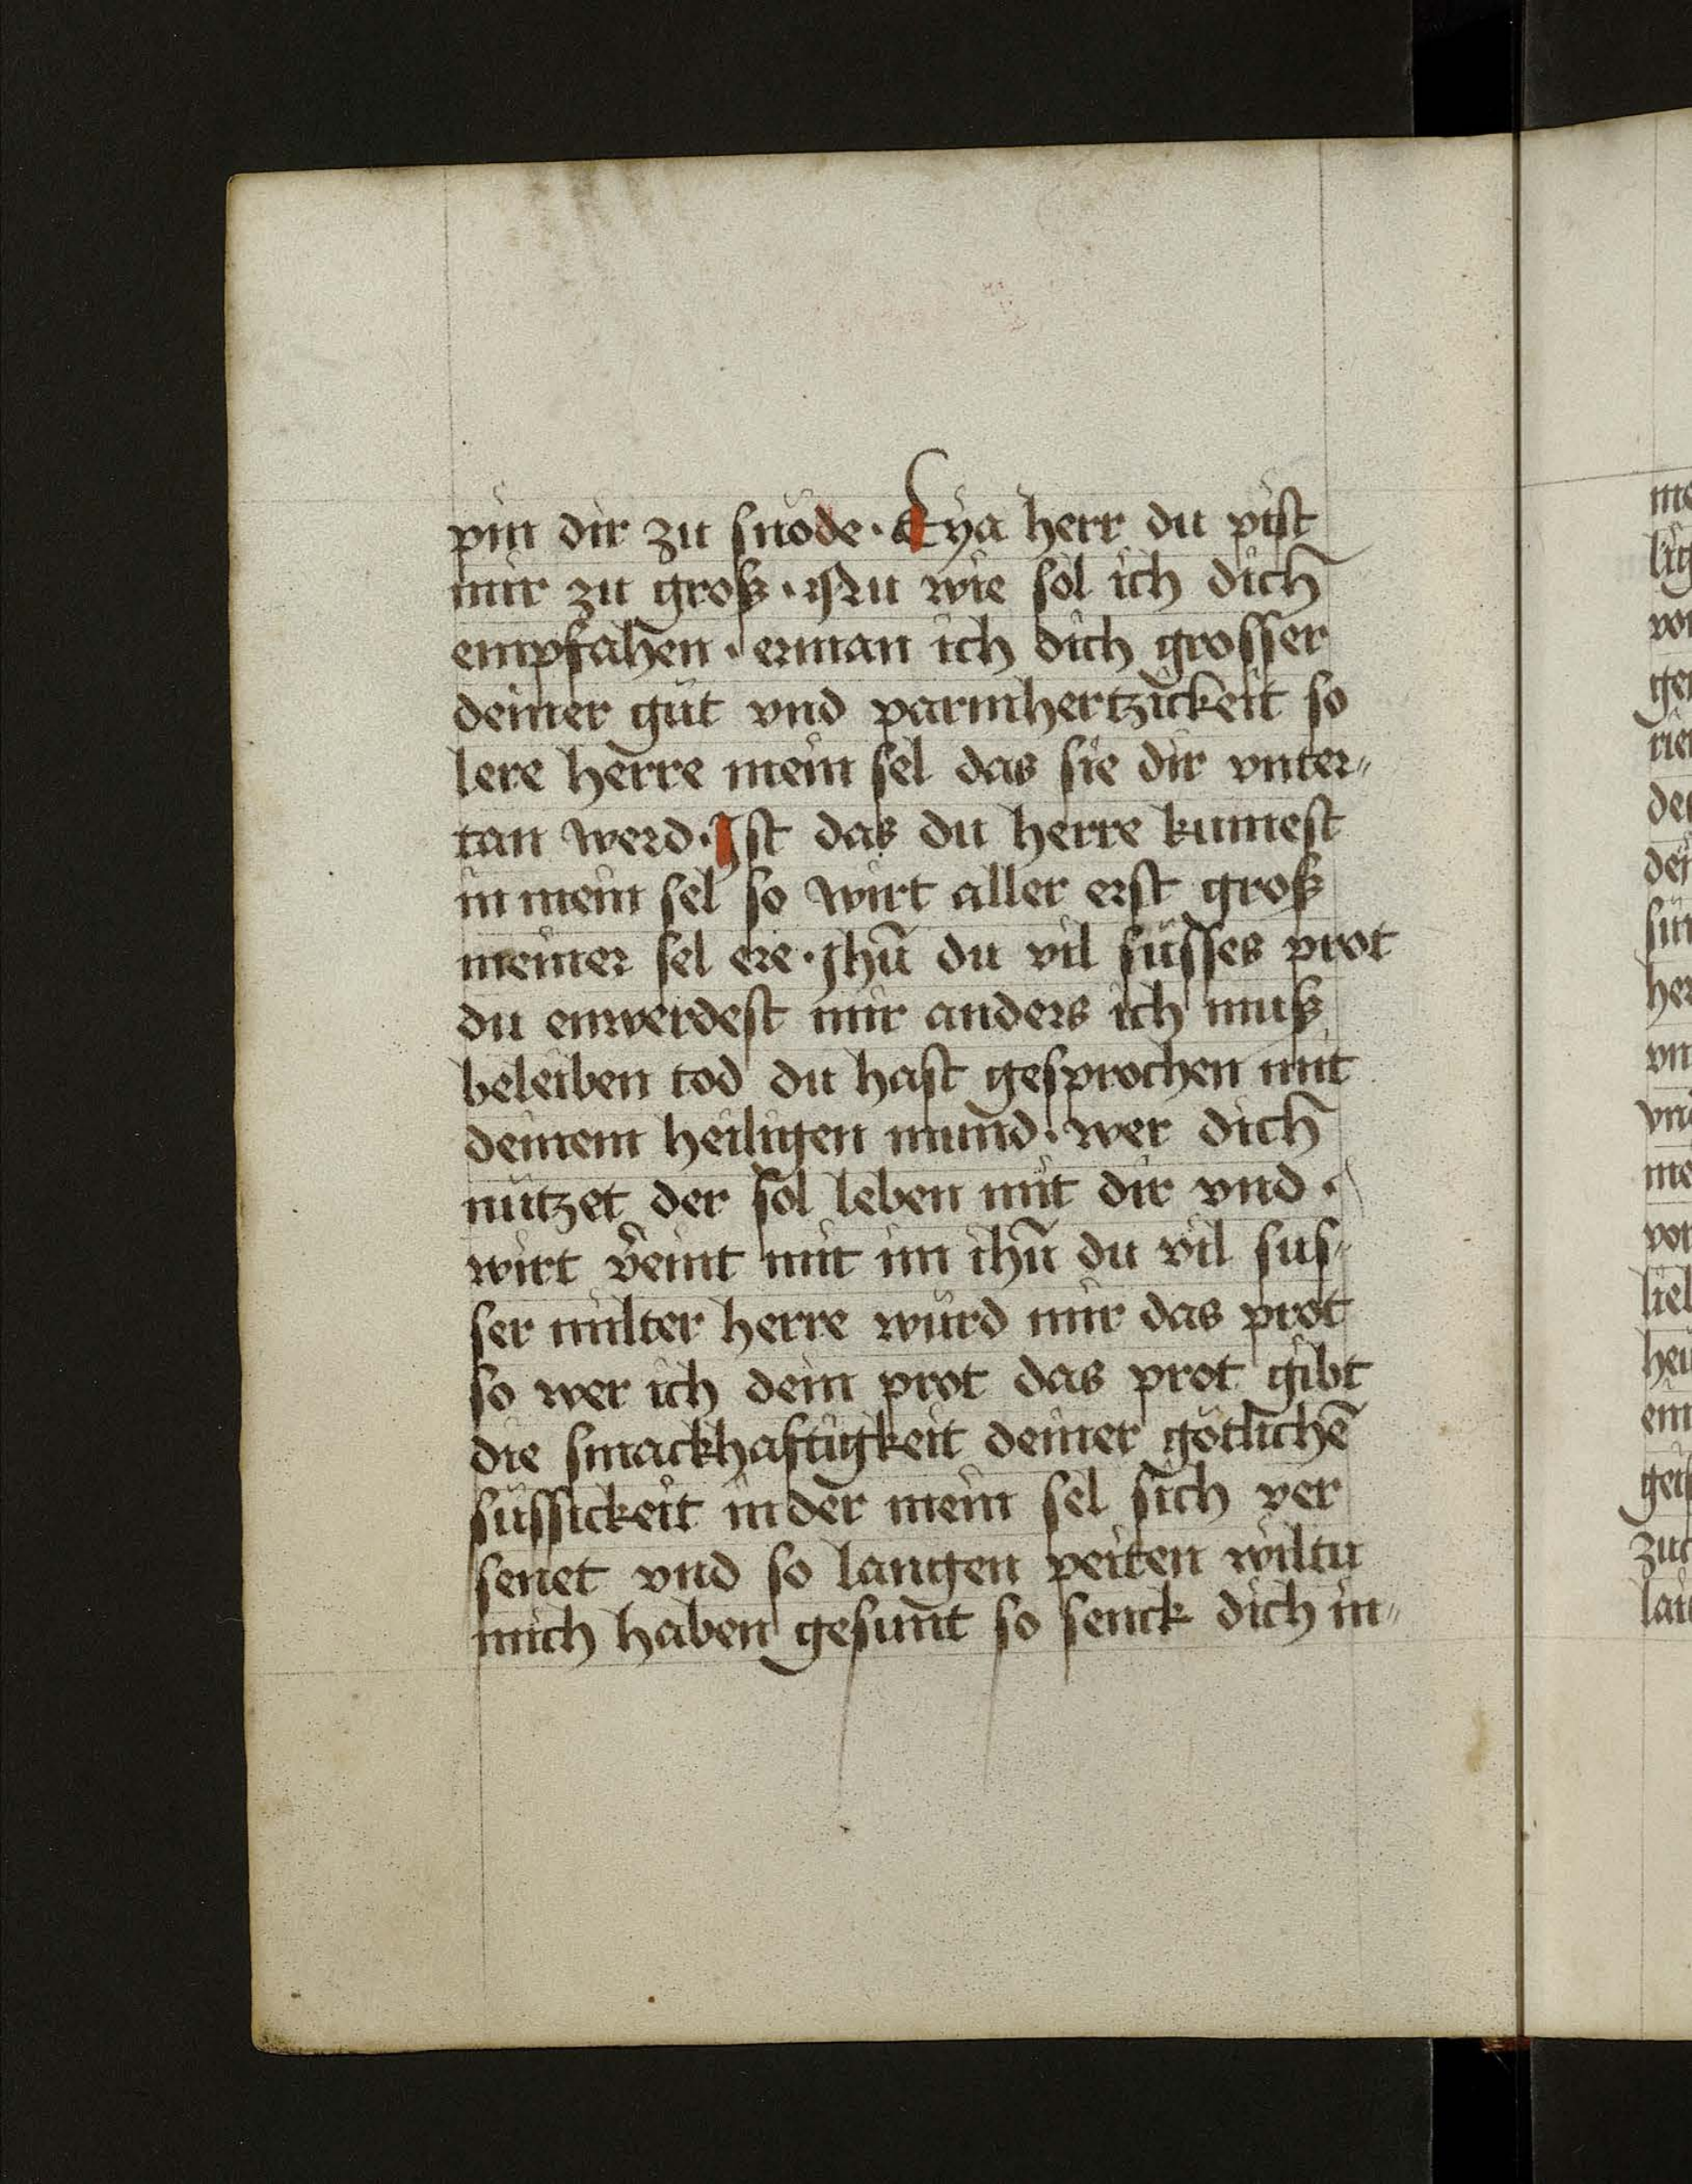 pin dir zu snöde · Eya herr du pist
mir zu groß · Nu wie sol ich dich
empfahen · erman ich dich grosser
deiner güt vnd parmhertzickeit so
lere herre mein sel das sie dir vnter„
tan werd · Ist das du herre kumest
in mein sel so wirt aller erst groß
meiner sel ere · Jhū du vil süsses prot
du enwerdest mir anders ich muß
beleiben tod du hast gesprochen mit
deinem heiligen mund · wer dich
nützet der sol leben mit dir vnd ·
wirt v̄eint mit im ihū du vil sus„
ser milter herre würd mir das prot
so wer ich dein prot das prot gibt
die smackhaftigkeit deiner götlichē
süssickeit in der mein sel sich ver
senet vnd so langen peiten wiltu
mich haben gesunt so senck dich in„